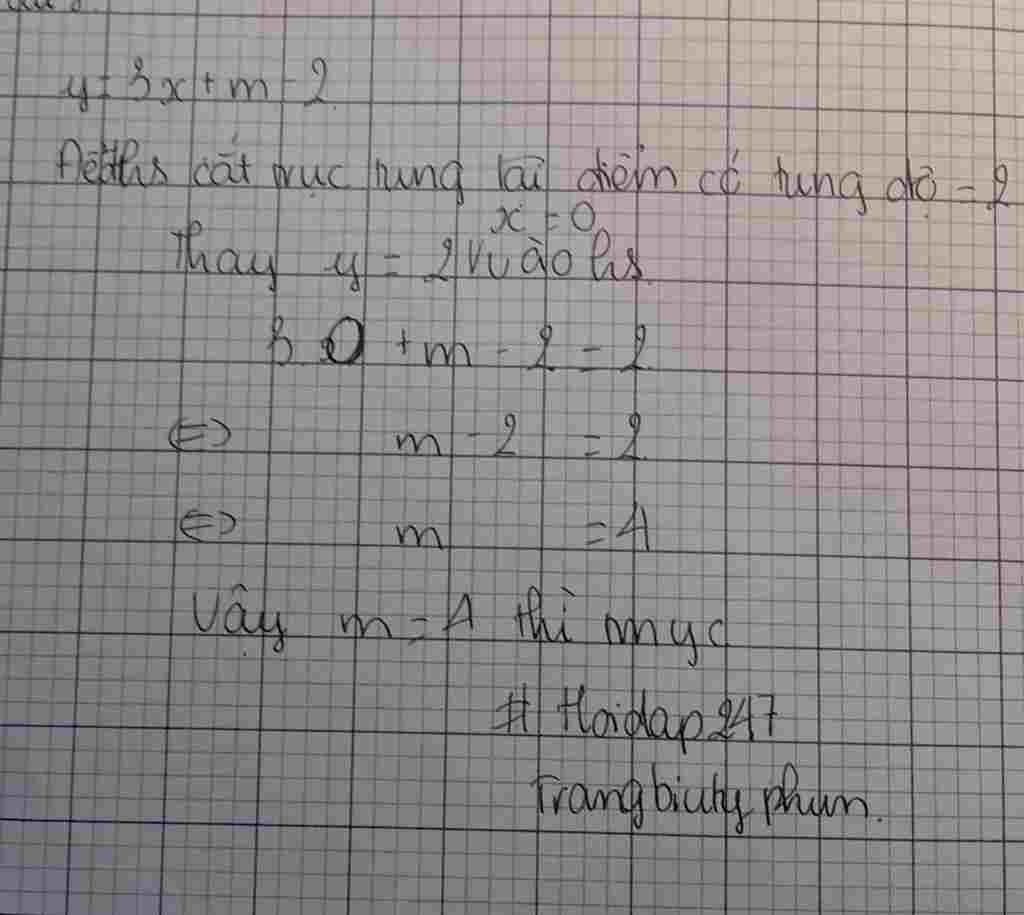 y = 3x + m - 2
Để đths cắt trục tung tại điểm có tung độ = 2
x = 0,
thay y = 2 vào hs
3.0 + m - 2 = 2
<=> m - 2 = 2
<=> m = 4
Vậy m = 4 thì tmycđ
# Hoidap247
Trangbiuty phun.